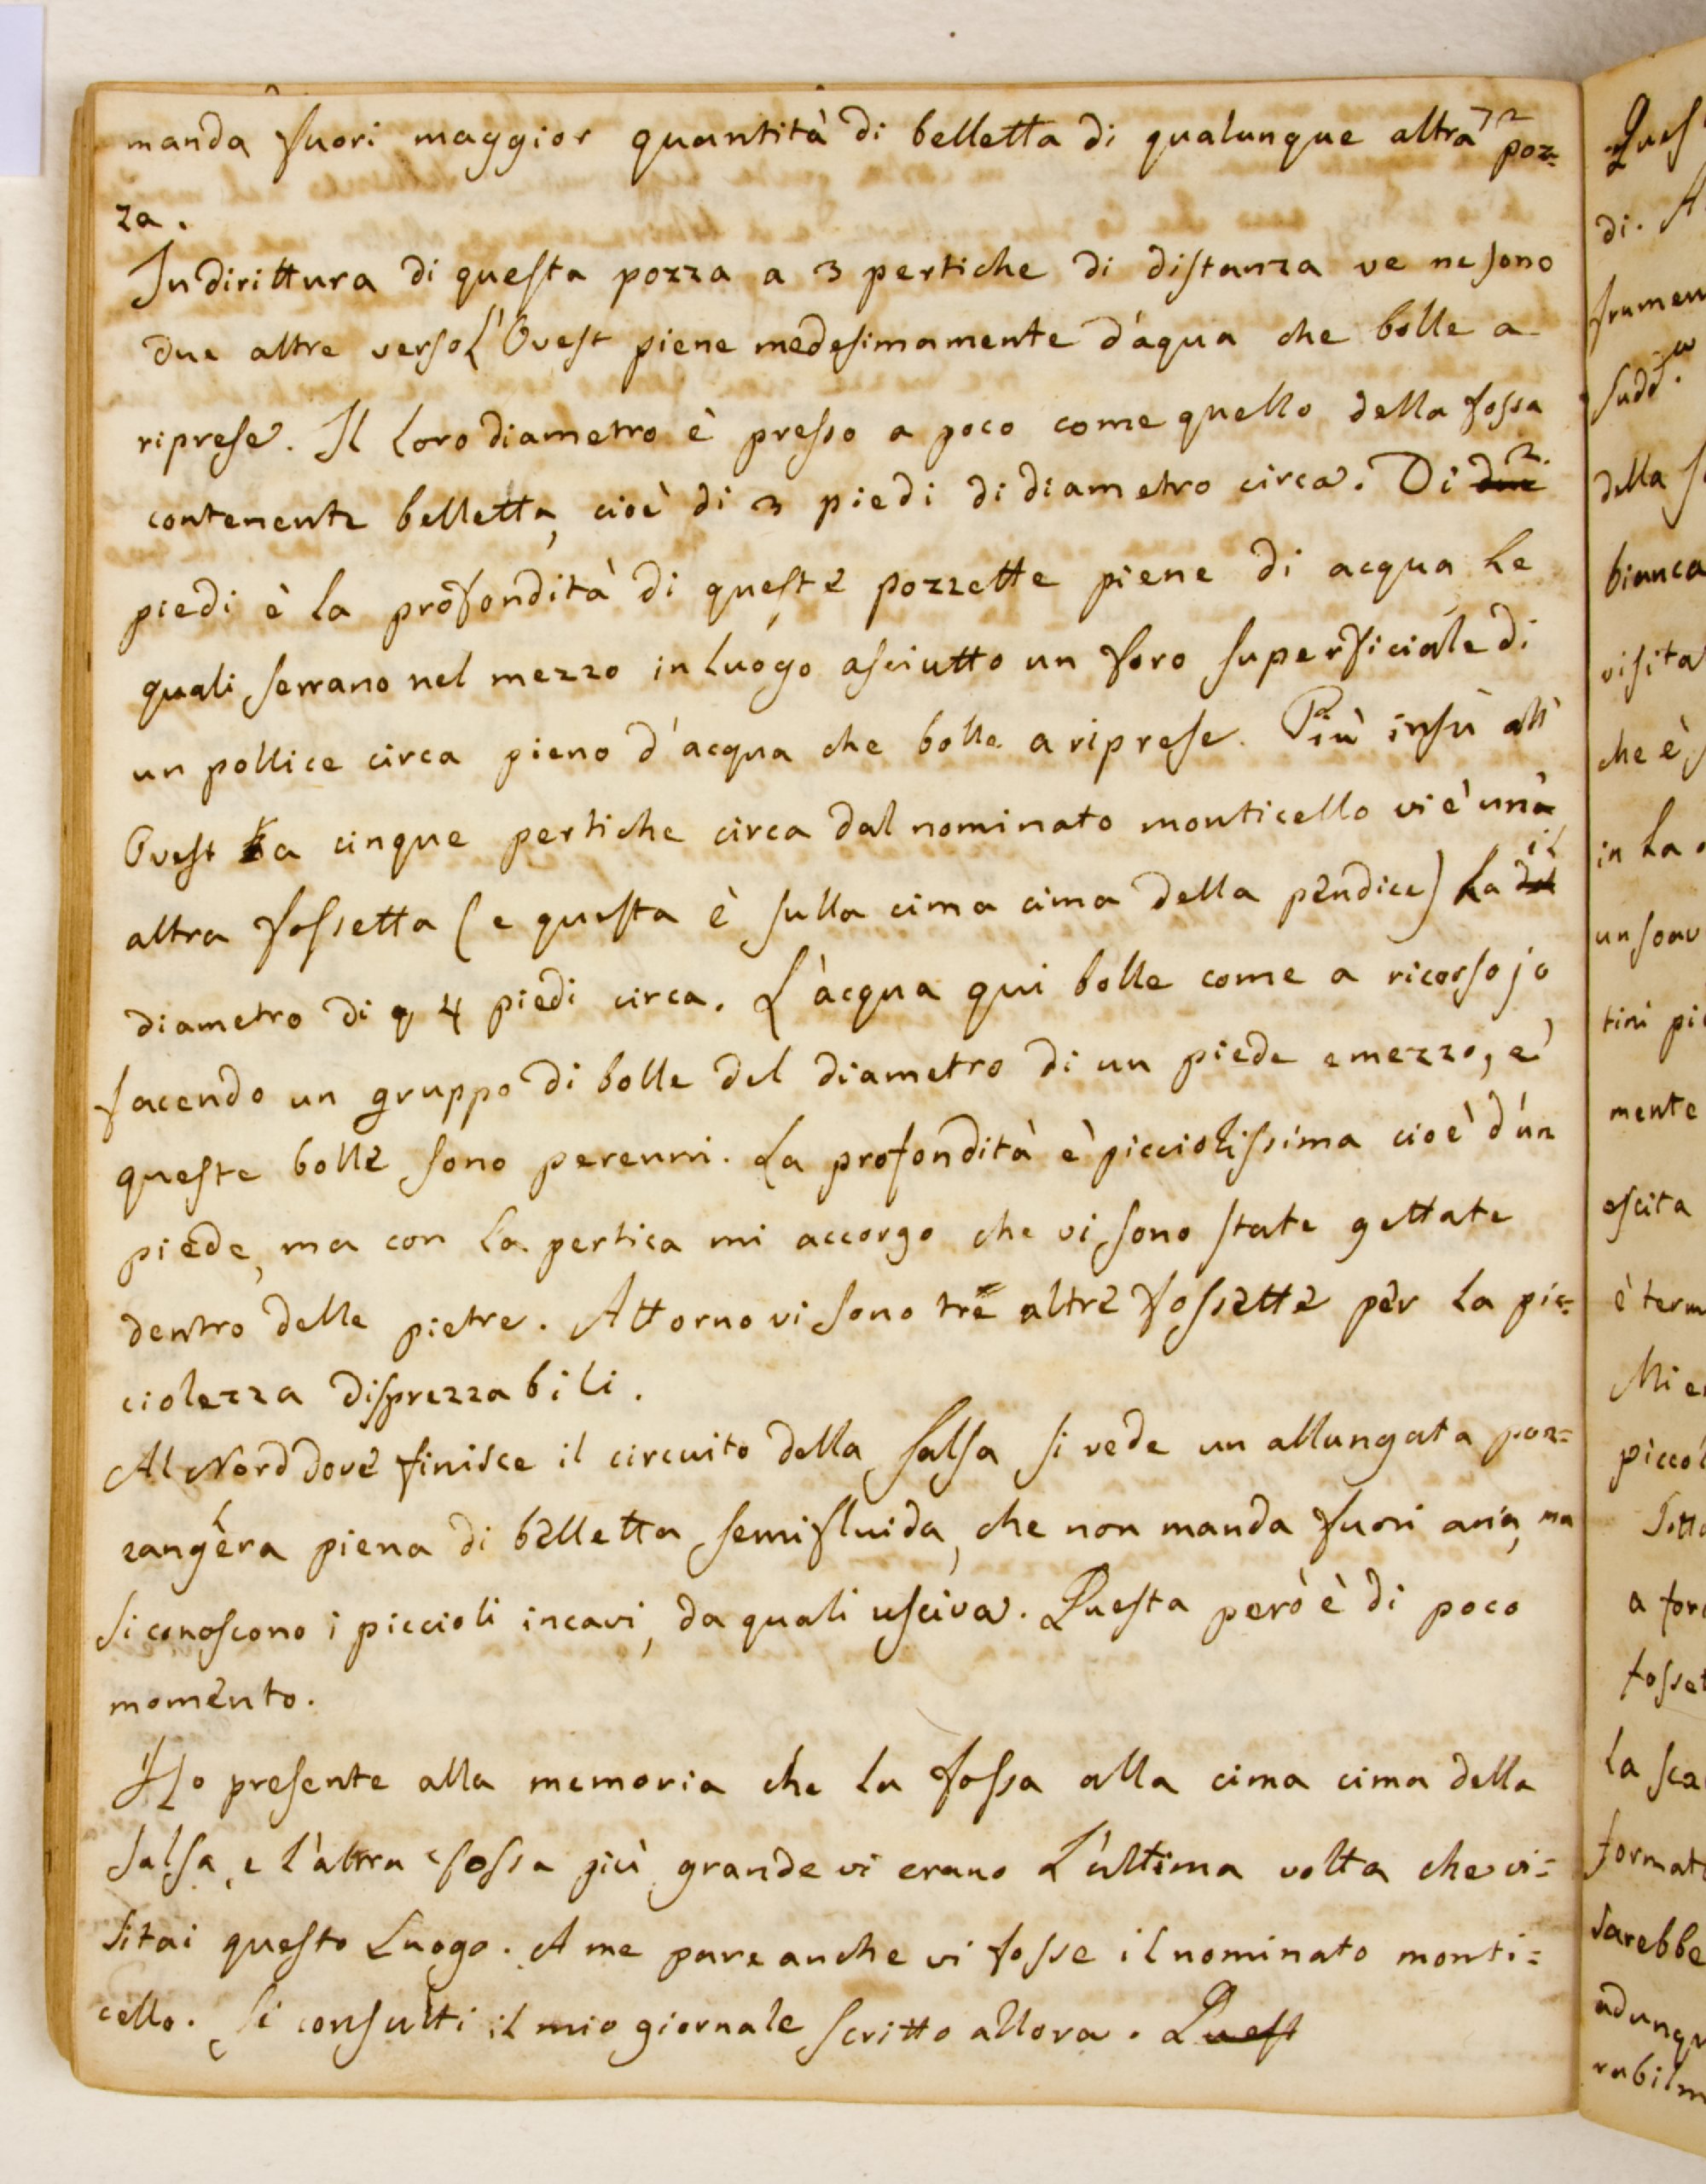 manda fuori maggior quantità di belletta di qualunque altra poz=
za.
Indirittura di questa pozza a 3 pertiche di distanza ve ne sono
due altre verso l'Ovest piene medesimamente d'aqua che bolle a
riprese. Il loro diametro è presso a poco come quello della fossa
contenente belletta, cioè di 3 piedi di diametro circa. Di due 2.
piedi è la profondità di queste pozzette piene di acqua le
quali serrano nel mezzo in luogo asciutto un foro superficiale di
un pollice circa pieno d'acqua che bolle a riprese. Più insù all'
Ovest a cinque pertiche circa dal nominato monticello vi è un'a
altra fossetta (e questa è sulla cima cima della pendice) ha del il
diametro di 4 piedi circa. L'acqua qui bolle come a ricorsojo
facendo un gruppo di bolle del diametro di un piede e mezzo, e'
queste bolle sono perenni. La profondità è picciolissima cioè d'un
piede, ma con la pertica mi accorgo che vi sono state gettate
dentro delle pietre. Attorno vi sono tre altre fossette per la pic=
ciolezza disprezzabili.
Al Nord dove finisce il circuito della Salsa si vede un allungata poz=
zanghera piena di belletta semifluida, che non manda fuori aria, ma
si conoscono i piccioli incavi, da quali usciva. Questa però è di poco
momento.
Ho presente alla memoria che la fossa alla cima cima della
Salsa, e l'altra fossa più grande vi erano l'ultima volta che vi=
sitai questo luogo. A me pare anche vi fosse il nominato monti=
cello. Si consulti il mio giornale scritto allora. Quest
Quest
di. A
strumen
sudd.a
della
bianca
visita
che è
in la
un soav
tini pi
mente
escita
è term
Mi e
piccol
Sotto
a for
fosset
la
format
sarebbe
adunqu
rabilm